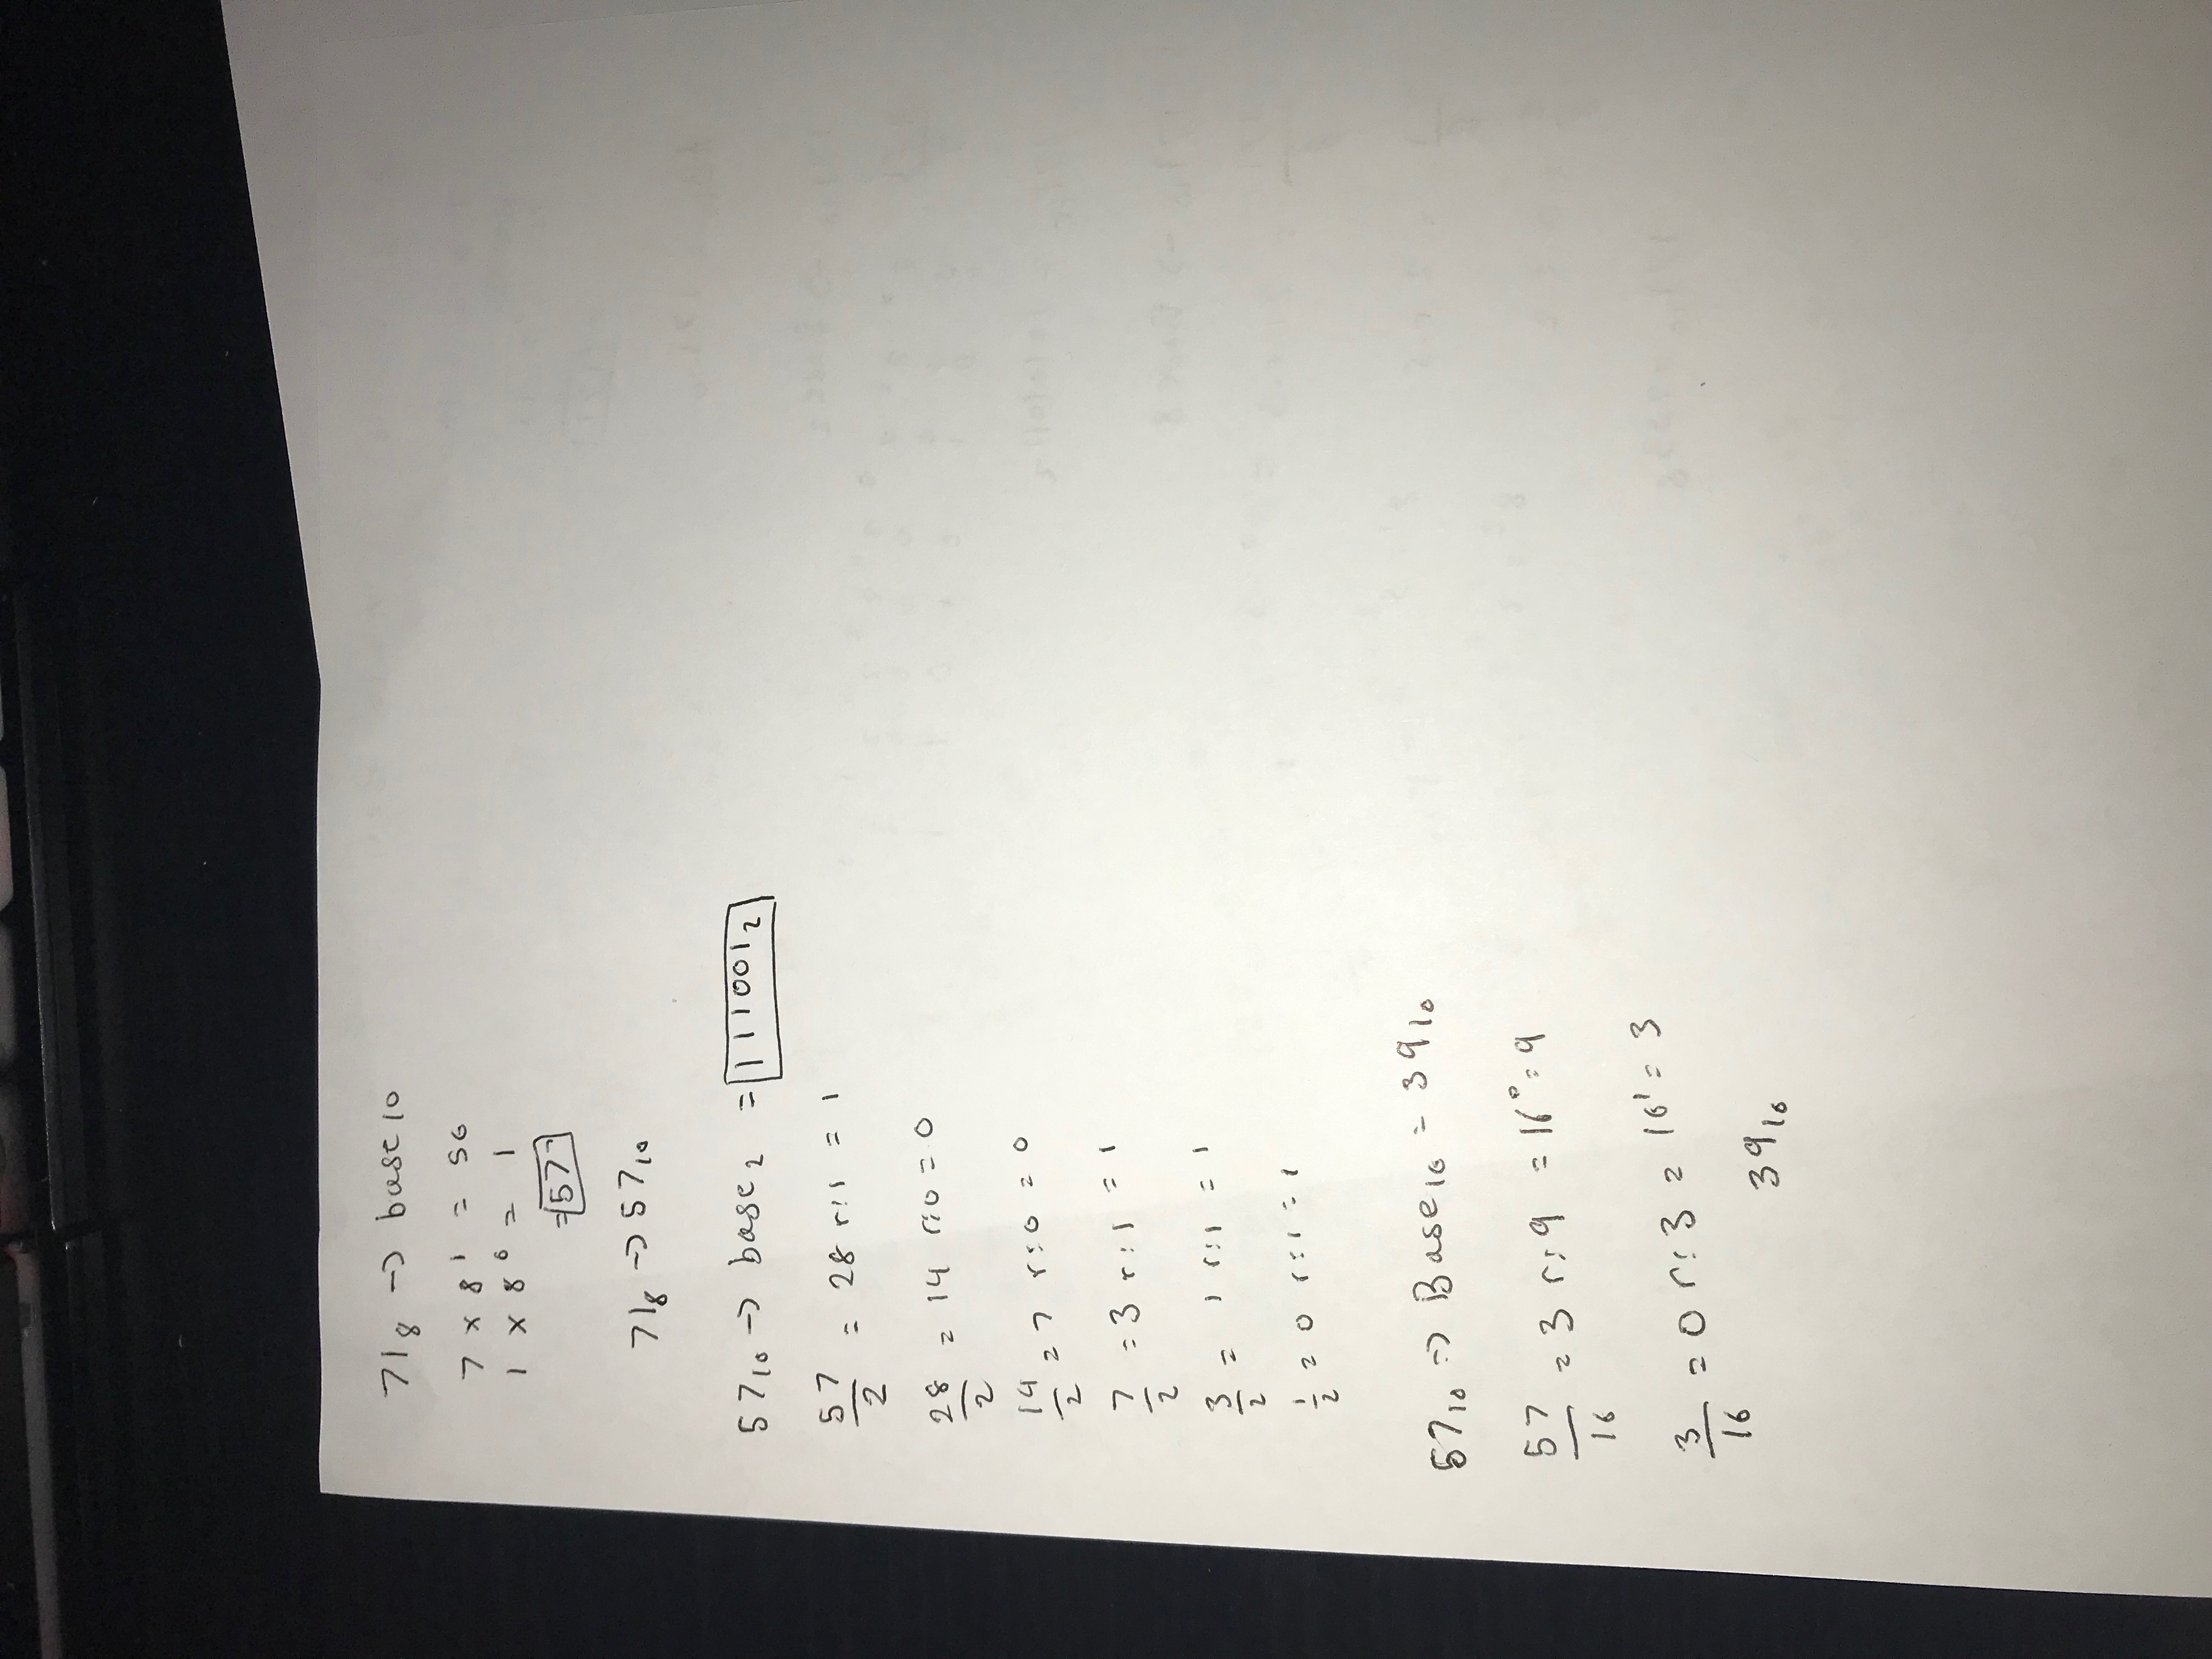 71₈ -> base 10
7 x 8¹ = 56
1 x 8⁰ = 1
= 57
71₈ -> 57₁₀
57₁₀ -> base₂ = 111001₂
57/2 = 28 r:1 = 1
28/2 = 14 r:0 = 0
14/2 = 7 r:0 = 0
7/2 = 3 r:1 = 1
3/2 = 1 r:1 = 1
1/2 = 0 r:1 = 1
57₁₀ -> Base₁₆ = 39₁₀
57/16 = 3 r:9 = 16⁰ = 9
3/16 = 0 r:3 = 16¹ = 3
39₁₆